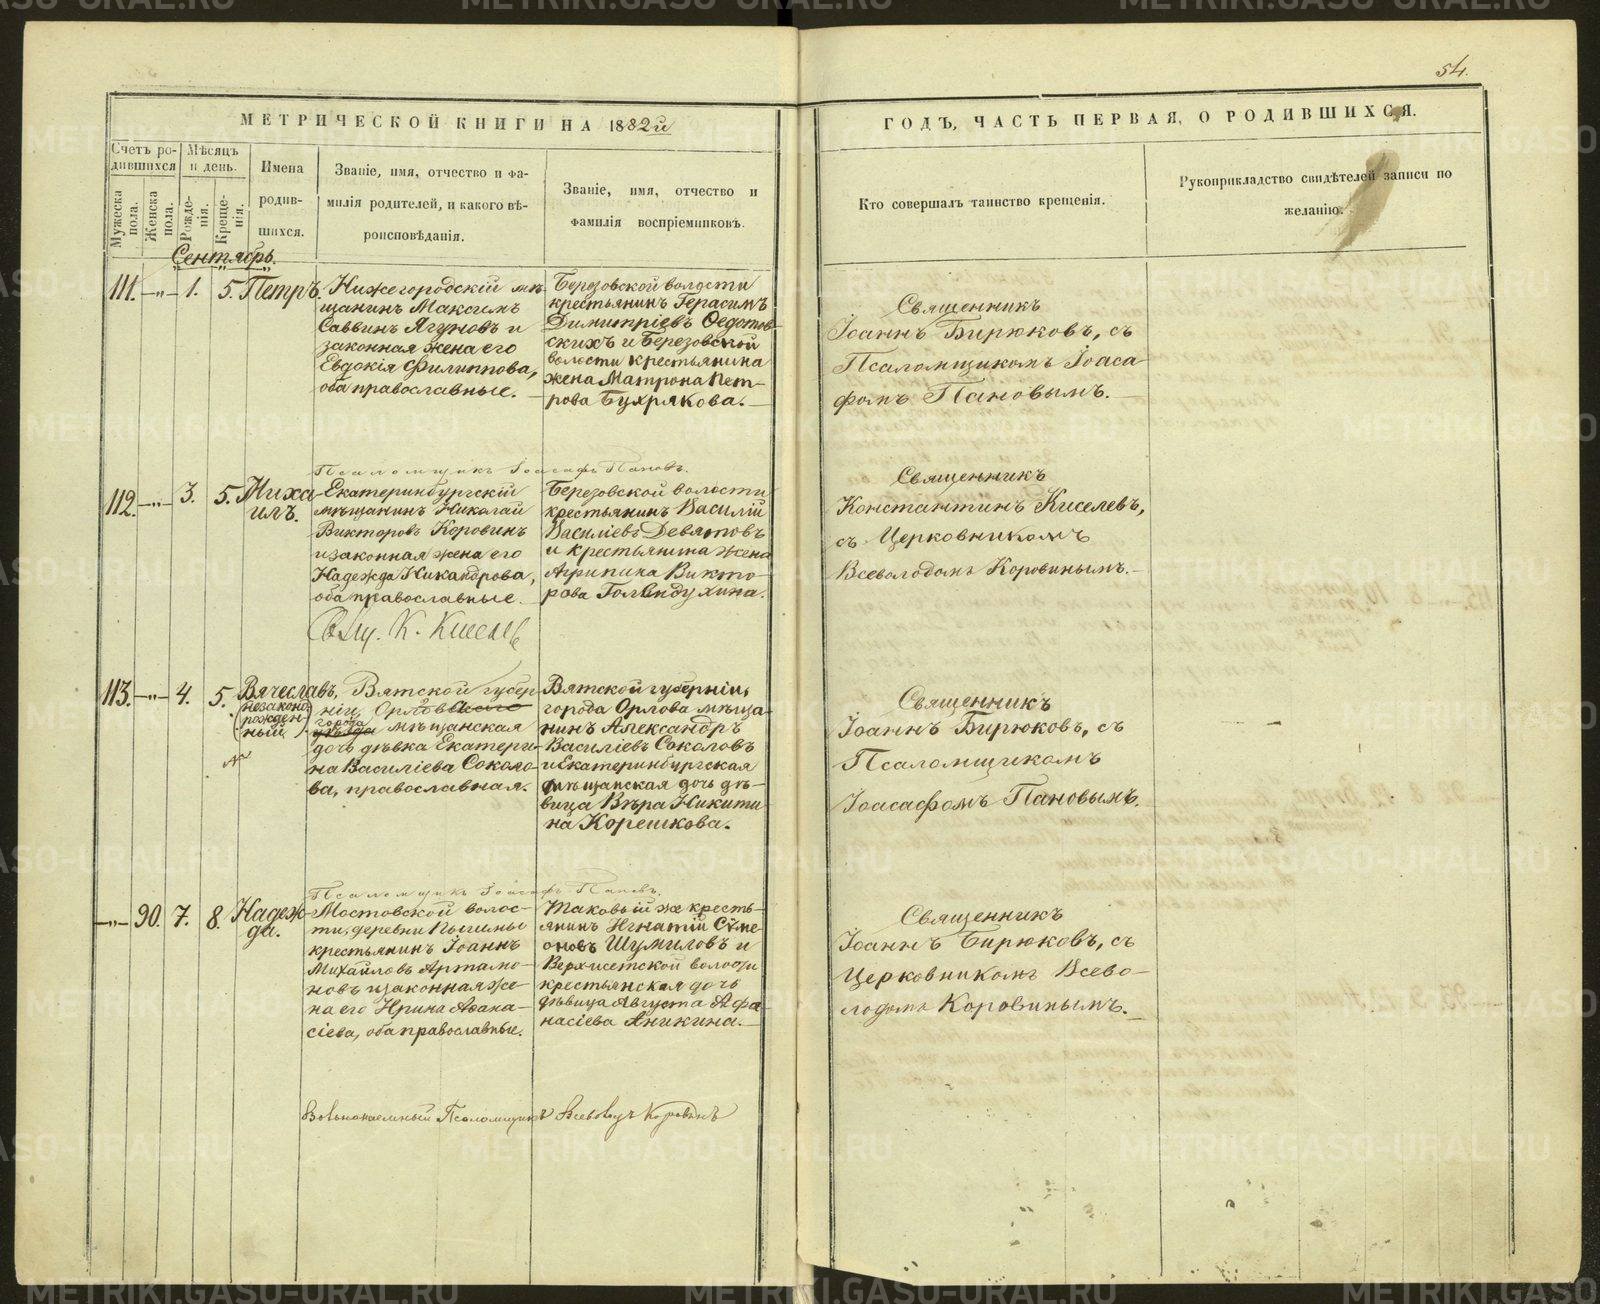 54.
МЕТРИЧЕСКОЙ КНИГИ НА 1882й
ГОДЪ, ЧАСТЬ ПЕРВАЯ, О РОДИВШИХСЯ.
Счетъ ро-
дившихся
Мужеска
пола.
Женска
пола.
Мѣсяцъ
и день.
Рожде-
нія.
Креще-
нія.
Имена
родив-
шихся.
Званіе, имя, отчество и фа-
милія родителей, и какого вѣ-
роисповѣданія.
Званіе, имя, отчество и
фамилія воспріемниковъ.
Кто совершалъ таинство крещенія.
Рукоприкладство свидѣтелей записи по
желанію.
Сентябрь.
111. —„— 1. 5. Петръ.
Нижегородскій мѣ-
щанинъ Максимъ
Саввинъ Ягуновъ и
законная жена его
Евдокія Филиппова,
оба православные.
Березовской волости
крестьянинъ Герасимъ
Димитріевъ Ѳедотов-
скихъ и Березовской
волости крестьянина
жена Матрона Пет-
рова Бухрякова.
Священникъ
Іоаннъ Бирюковъ, съ
Псаломщикомъ Іоаса-
фомъ Пановымъ.
Псаломщикъ Іоасафъ Пановъ.
112. —„— 3. 5. Миха-
илъ.
Екатеринбургскій
мѣщанинъ Николай
Викторовъ Коровинъ
и законная жена его
Надежда Никандрова,
оба православные.
Березовской волости
крестьянинъ Василій
Васильевъ Девятовъ
и крестьянина жена
Агрипина Викто-
рова Голендухина.
Священникъ
Константинъ Киселевъ,
съ Церковникомъ
Всеволодомъ Коровинымъ.
Свящ. К. Киселевъ
113. —„— 4. 5. Вячеславъ,
(незаконо-
рожден-
ный)
Вятской губер-
ніи, Орлова
города мѣщанская
дочь дѣвка Екатери-
на Василіева Соколо-
ва, православная.
Вятской губерніи,
города Орлова мѣща-
нинъ Александръ
Василіевъ Соколовъ
и Екатеринбургская
мѣщанская дочь дѣ-
вица Вѣра Никити-
на Корешкова.
Священникъ
Іоаннъ Бирюковъ, съ
Псаломщикомъ
Іоасафомъ Пановымъ.
Псаломщикъ Іоасафъ Пановъ.
—„— 90. 7. 8. Надеж-
да.
Мостовской волос-
ти, деревни Пышмы
крестьянинъ Іоаннъ
Михайловъ Артамо-
новъ и законная же-
на его Ирина Аѳана-
сіева, оба православные.
Таковый же кресть-
янинъ Игнатій Симе-
оновъ Шумиловъ и
Верхисетской волости
крестьянская дочь
дѣвица Августа Афа-
насіева Аникина.
Священникъ
Іоаннъ Бирюковъ, съ
Церковникомъ Всево-
лодомъ Коровинымъ.
Вольнонаемный Псаломщикъ Всеволодъ Коровинъ
METRIKI.GASO-URAL.RU